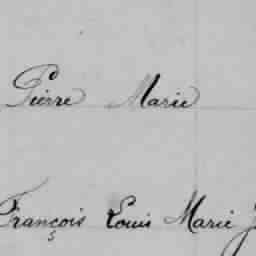 Pierre Marie
François Louis Marie J